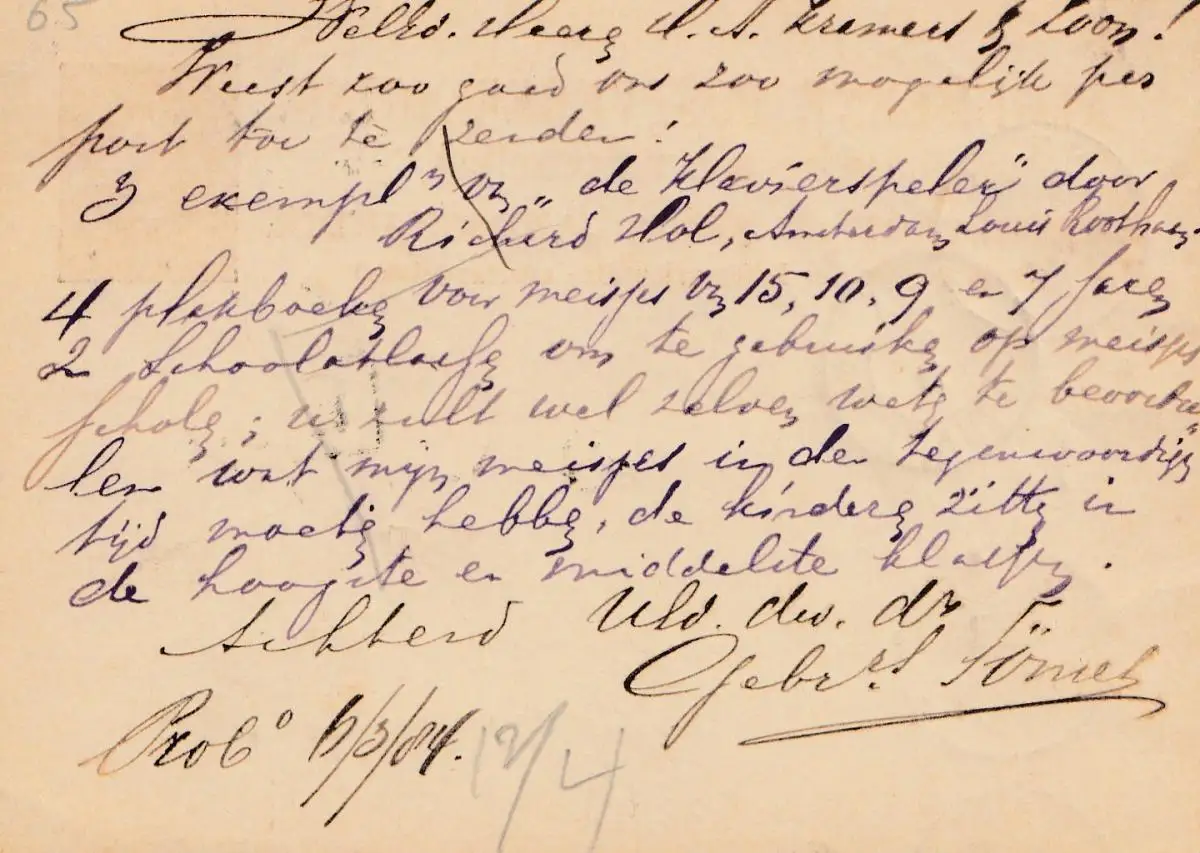 65
WelEd. Heeren H. A. Kremers & Zoon!
Weest zoo goed ons zoo mogelijk per
post toe te zenden:
3 exempln vn „de Klavierspeler" door
Richard Hol, Amsterdam Louis Roothaan.
4 plakboeken voor meisjes vn 15, 10, 9 en 7 jaren
2 Schoolatlassen om te gebruiken op meisjes
scholen; u zult wel zelven weten te beoordee„
len wat mijn meisjes in den tegenwoordigen
tijd moeten hebben, de kinderen zitten in
de hoogste en middelste klassen.
Achtend UEd. dw. dr
Gebrs.
Probo /3/84.
12/4